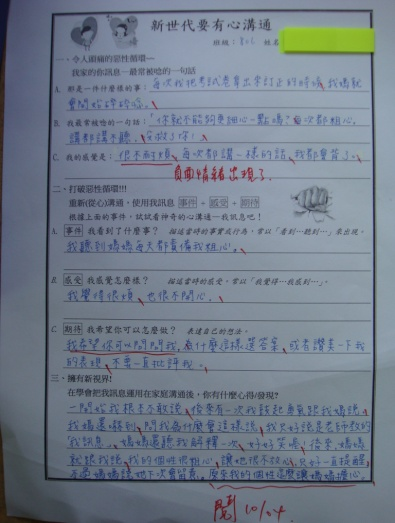 新世代要有心溝通
班級： 姓名
一、令人頭痛的惡性循環—
我家的你訊息—最常被唸的一句話
A. 那是一件什麼樣的事：每次我把考試卷拿出來訂正的時候，我媽就
會開始碎碎唸。
B. 我最常被唸的一句話：「你就不能夠更細心一點嗎？每次都粗心，
講都講不聽，
C. 我的感覺是：很不耐煩，每次都講一樣的話，我都會背了。
負面情緒出現了
二、打破惡性循環!!!
重新(從心)溝通，使用我訊息 事件 + 感受 + 期待
依據上面的事件，試試看神奇的心溝通—我訊息吧！
A. 事件 我看到了什麼事？ 描述當時的事實或行為，常以「看到…聽到…」來出現。
我聽到媽媽每天都責備我粗心。
B. 感受 我感覺怎麼樣？ 描述當時的感受，常以「我覺得…我感到…」。
我覺得很煩，也很不開心。
C. 期待 我希望你可以怎麼做？ 表達自己的想法。
我希望你可以問問我，為什麼這樣選答案，或者讚美一下我
的表現，不要一直批評我。
三、擁有新視界!
在學會把我訊息運用在家庭溝通後，你有什麼心得/發現?
一開始我根本不敢說，後來有一次我鼓起勇氣跟我媽說，
我媽還嚇到，問我為什麼會這樣說，我只好說是老師教的
「我訊息」。媽媽還聽我解釋一次，好好笑喔！後來，媽媽
就跟我說，我的個性很粗心，讓她很不放心，只好一直提醒，
原來我的個性這麼讓媽媽擔心。
10/24